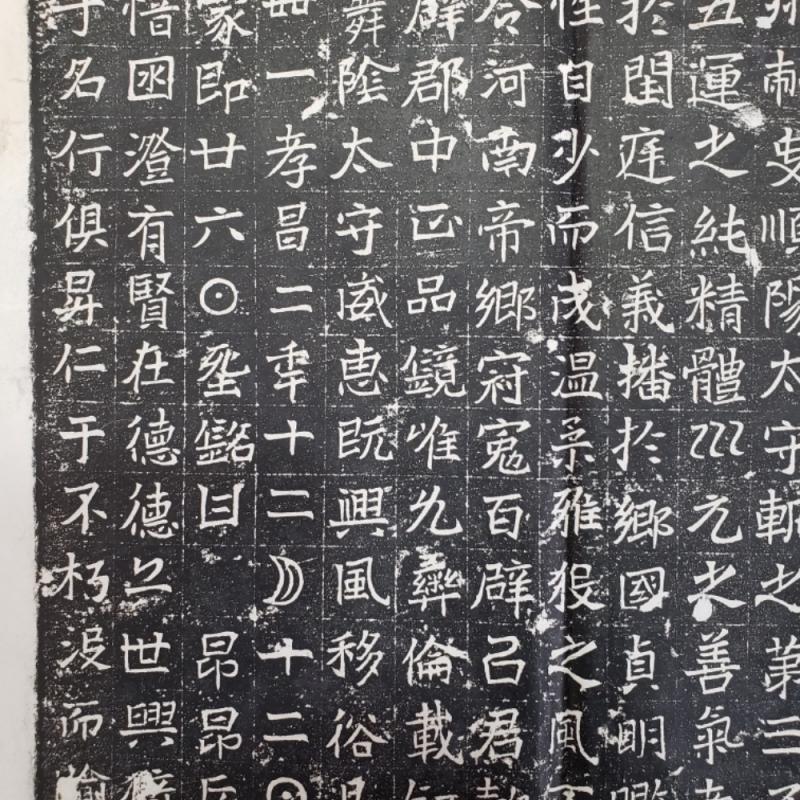 刺史順陽太守之第三
五運之純精體巛元之善氣
於閨庭信義播於鄉國貞明鑒
性自少而成溫柔雅之風
令河南帝鄉冠冕百辟己君
辟郡中正品鏡唯允彝倫載
舞陰太守威惠既興風移俗
一孝昌二年十二月十二日
家即廿六日銘曰 昂昂
悟囦澄有賢在德德之世興
于名行俱昇仁于不朽没而